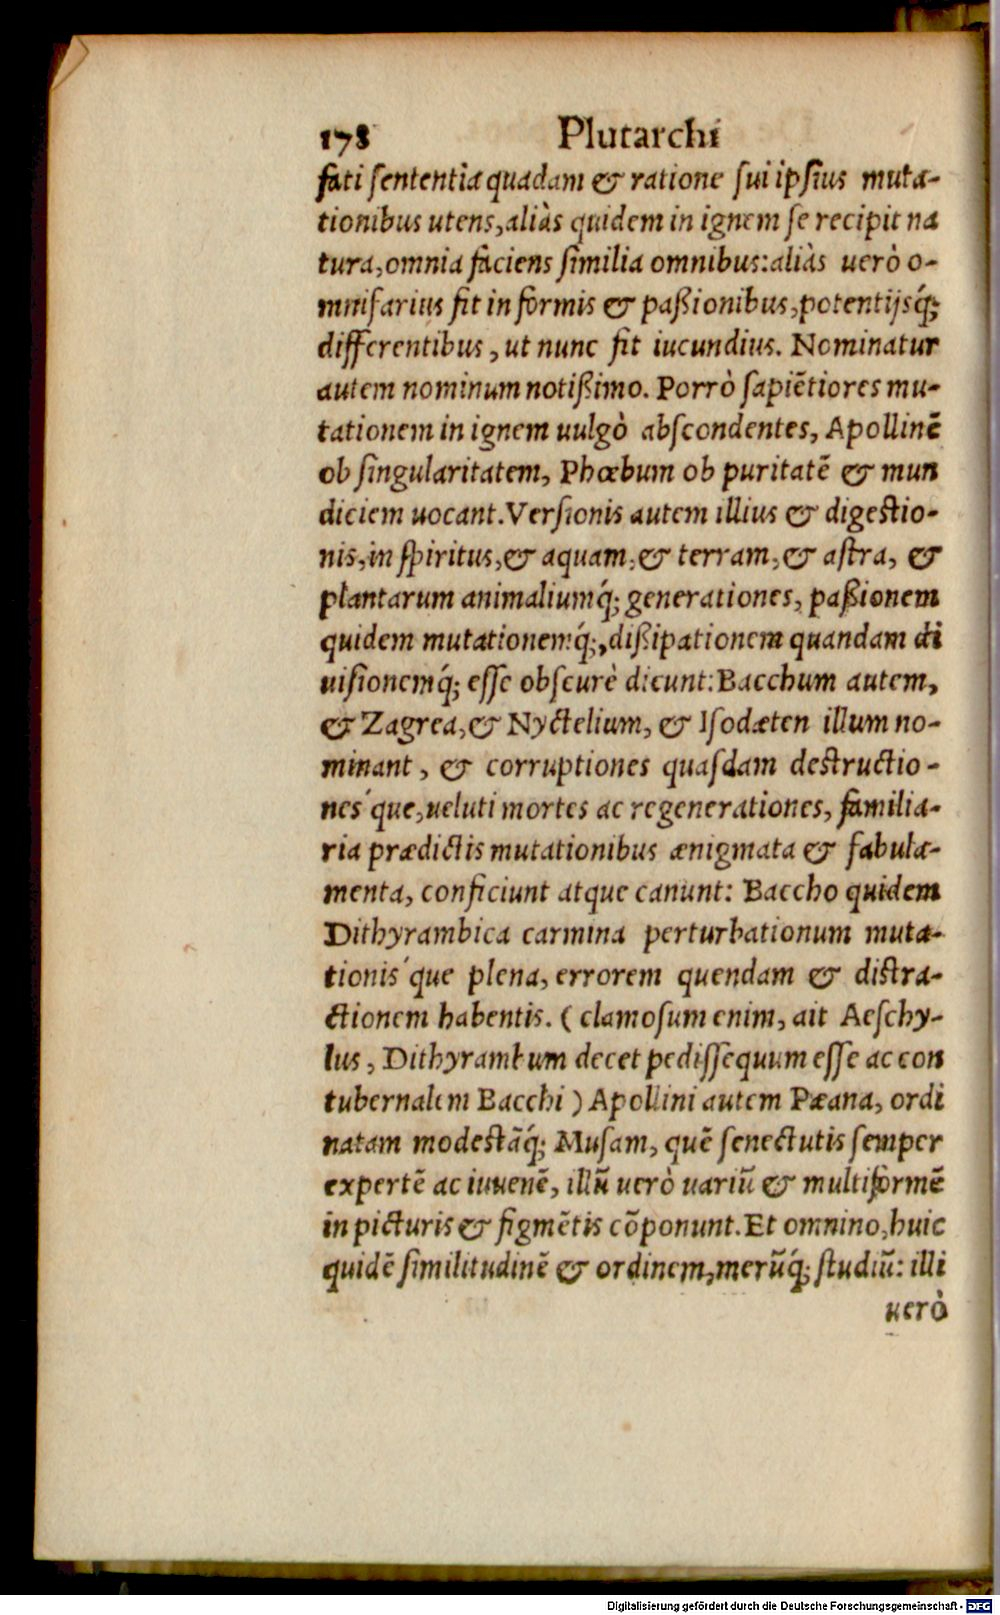 178 Plutarchi
fati sententia quadam & ratione sui ipsius muta-
tionibus utens, aliàs quidem in ignem se recipit na
tura, omnia faciens similia omnibus: aliàs uerò o-
mnifarius fit in formis & paßionibus, potentijsq́;
differentibus, ut nunc fit iucundius. Nominatur
autem nominum notißimo. Porrò sapiẽtiores mu-
tationem in ignem uulgò abscondentes, Apollinẽ
ob singularitatem, Phœbum ob puritatẽ & mun
diciem uocant. Versionis autem illius & digestio-
nis, in spiritus, & aquam, & terram, & astra, &
plantarum animaliumq́; generationes, paßionem
quidem mutationemq́;, dißipationem quandam di
uisionemq́; esse obscurè dicunt: Bacchum autem,
& Zagrea, & Nyctelium, & Isodæten illum no-
minant, & corruptiones quasdam destructio-
nes´que, ueluti mortes ac regenerationes, familia-
ria prædictis mutationibus ænigmata & fabula-
menta, conficiunt atque canunt: Baccho quidem
Dithyrambica carmina perturbationum muta-
tionis´que plena, errorem quendam & distra-
ctionem habentis. (clamosum enim, ait Aeschy-
lus, Dithyrambum decet pedissequum esse ac con
tubernalem Bacchi) Apollini autem Pæana, ordi
natam modestãq́; Musam, quẽ senectutis semper
expertẽ ac iuuenẽ, illũ uerò uariũ & multiformẽ
in picturis & figmẽtis cõponunt. Et omnino, huic
quidẽ similitudinẽ & ordinem, merũq́; studiũ: illi
uerò
Digitalisierung gefördert durch die Deutsche Forschungsgemeinschaft - DFG